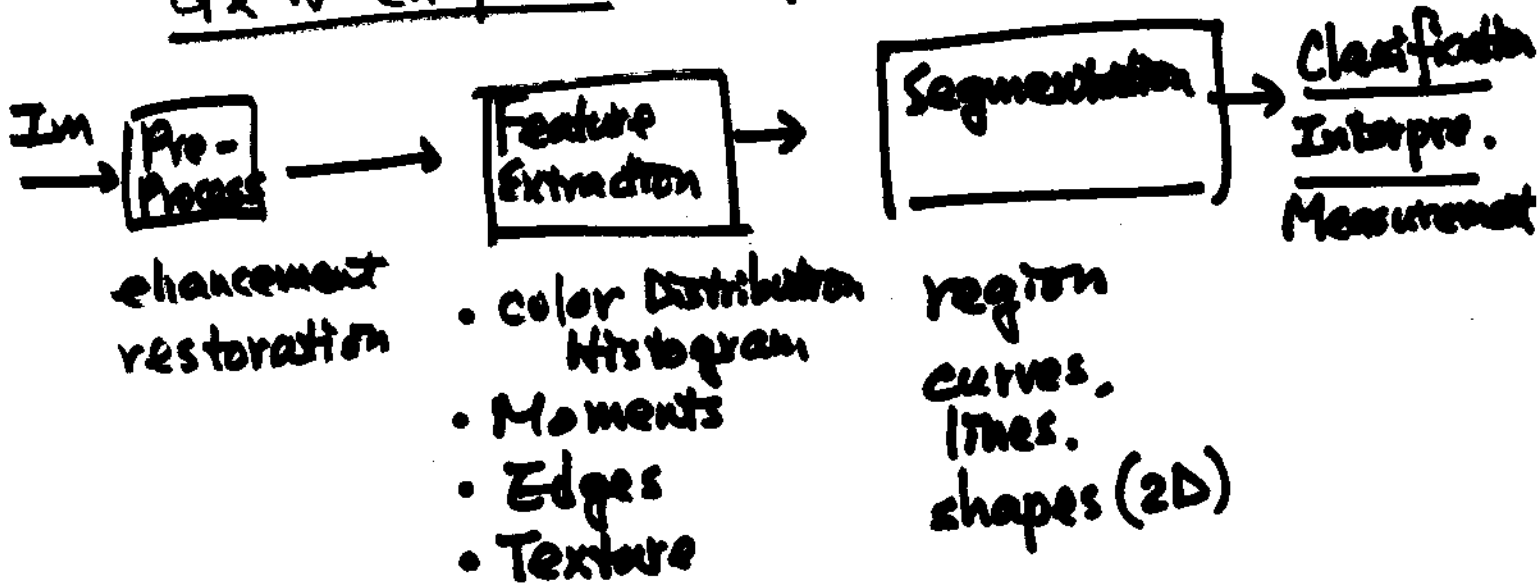 Im
Pre-
Process
Feature
Extraction
Segmentation
Classification
Interpre.
Measurement
ehancement
restoration
• color Distribution
Histogram
• Moments
• Edges
• Texture
region
curves.
lines.
shapes (2D)